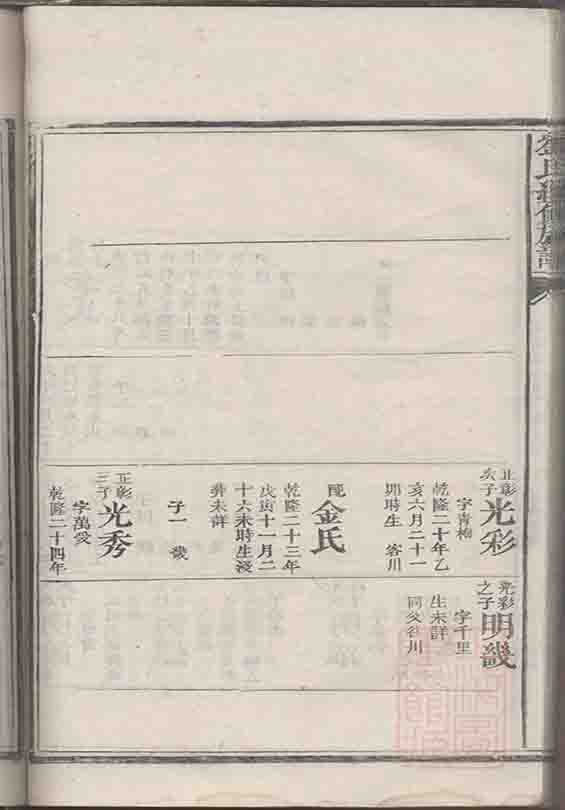 正彰
次子
光彩
字青梅
乾隆二十年乙
亥六月二十一
卯時生 客川
配
金氏
乾隆二十三年
戊寅十一月二
十六未時生歿
葬未詳
子一 畿
正彰
三子
光秀
字萬受
乾隆二十四年
光彩
之子
明畿
字千里
生未詳
同父往川